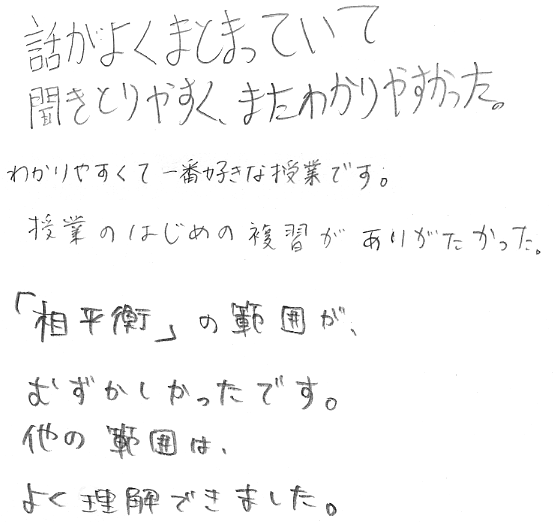 話がよくまとまっていて
聞きとりやすく、またわかりやすかった。
わかりやすくて一番好きな授業です。
授業のはじめの複習がありがたかった。
「相平衡」の範囲が、
むずかしかったです。
他の範囲は、
よく理解できました。